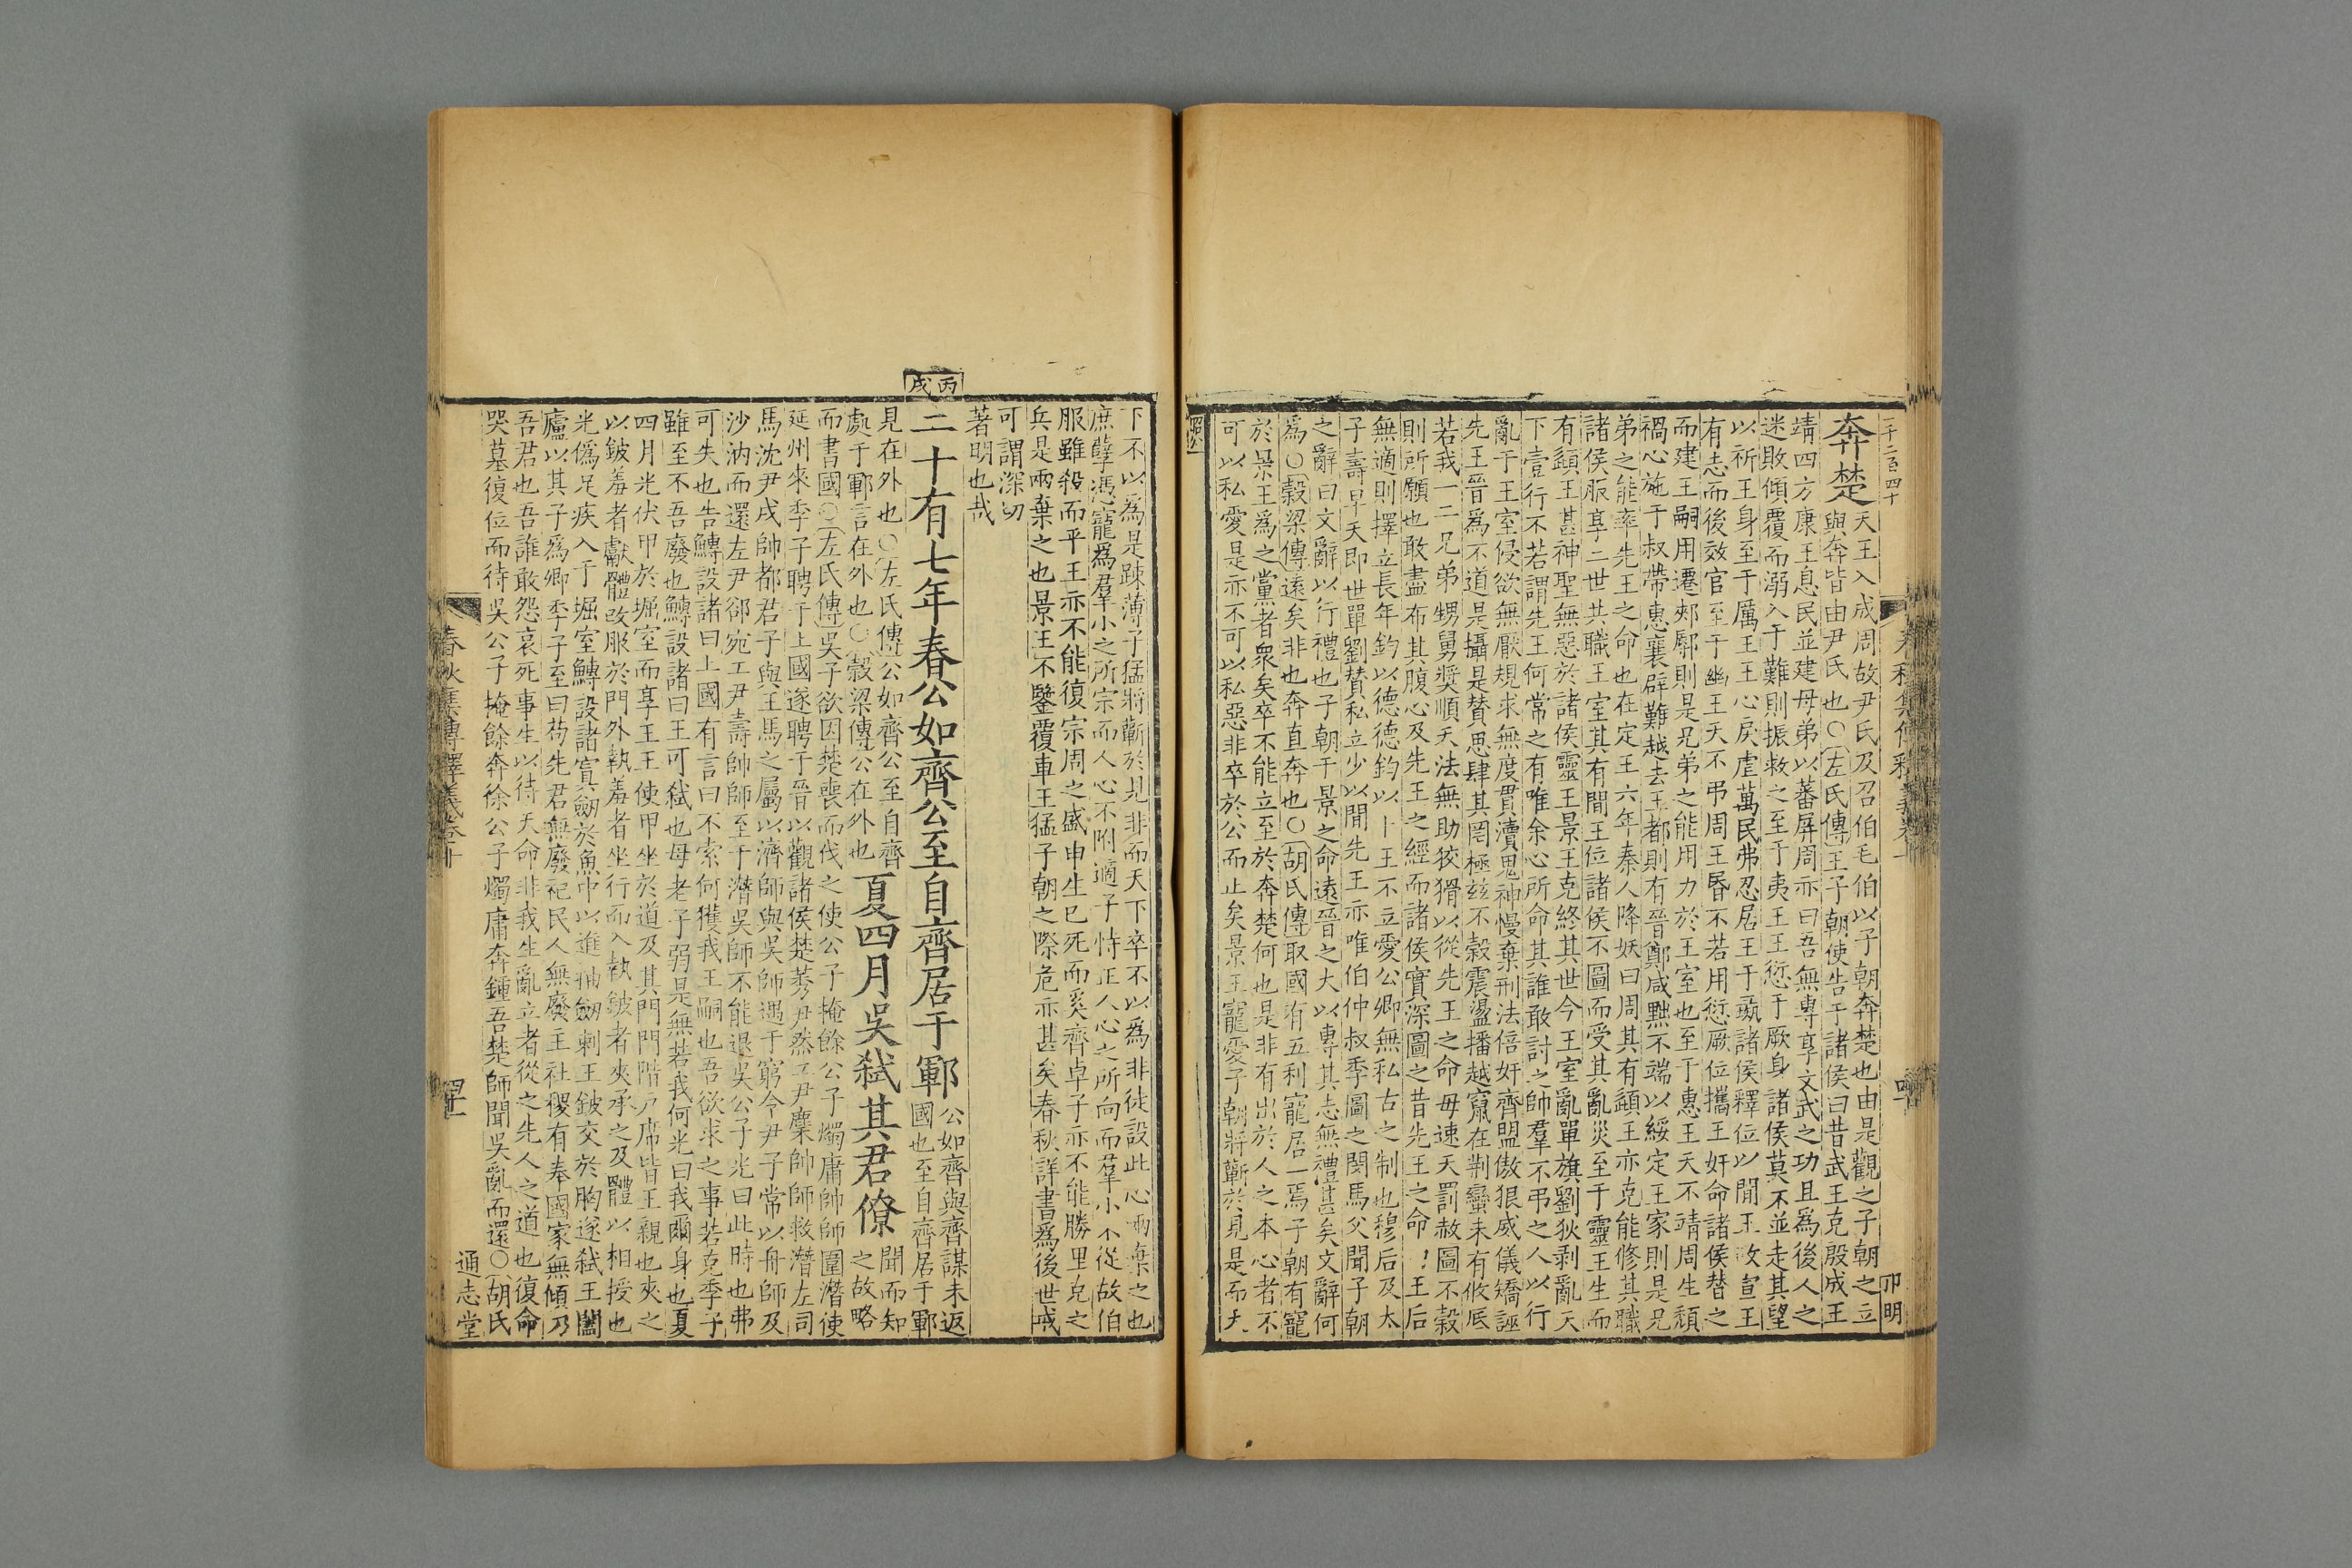 二千二百四十
卬明
奔楚
天王入成周故尹氏及召伯毛伯以子朝奔楚也由是觀之子朝之立
與奔皆由尹氏也○左氏傳王子朝使告于諸侯曰昔武王克殷成王
靖四方康王息民並建母弟以蕃屏周亦曰吾無專享文武之功且爲後人之
迷敗傾覆而溺入于難則振救之至于夷王王愆于厥身諸侯莫不並走其望
以祈王身至于厲王王心戾虐萬民弗忍居王于彘諸侯釋位以閒王政宣王
有志而後效官至于幽王天不弔周王昬不若用愆厥位攜王奸命諸侯替之
而建王嗣用遷郟鄏則是兄弟之能用力於王室也至于惠王天不靖周生頹
禍心施于叔帶惠襄辟難越去王都則有晉鄭咸黜不端以綏定王家則是兄
弟之能率先王之命也在定王六年秦人降妖曰周其有頿王亦克能修其職
諸侯服享二世共職王室其有閒王位諸侯不圖而受其亂災至于靈王生而
有頿王甚神聖無惡於諸侯靈王景王克終其世今王室亂單旗劉狄剥亂天
下壹行不若謂先王何常之有唯余心所命其誰敢討之帥羣不弔之人以行
亂于王室侵欲無厭規求無度貫瀆鬼神慢棄刑法倍奸齊盟傲狠威儀矯誣
先王晉爲不道是攝是贊思肆其罔極兹不穀震盪播越竄在荆蠻未有攸厎
若我一二兄弟甥舅奬順天法無助狡猾以從先王之命毋速天罰赦圖不穀
則所願也敢盡布其腹心及先王之經而諸侯實深圖之昔先王之命曰王后
無適則擇立長年鈞以德德鈞以卜王不立愛公卿無私古之制也穆后及太
子壽早夭即世單劉贊私立少以閒先王亦唯伯仲叔季圖之閔馬父聞子朝
之辭曰文辭以行禮也子朝干景之命遠晉之大以專其志無禮甚矣文辭何
爲○穀梁傳遠矣非也奔直奔也○胡氏傳取國有五利寵居一焉子朝有寵
於景王爲之黨者衆矣卒不能立至於奔楚何也是非有出於人之本心者不
可以私愛是亦不可以私惡非卒於公而止矣景王寵愛子朝將蘄於見是而天
下不以爲是踈薄子猛將蘄於見非而天下卒不以爲非徒設此心兩棄之也
庶孽馮寵爲羣小之所宗而人心不附適子恃正人心之所向而羣小不從故伯
服雖殺而平王亦不能復宗周之盛申生已死而奚齊卓子亦不能勝里克之
兵是兩棄之也景王不鑒覆車王猛子朝之際危亦甚矣春秋詳書爲後世戒
可謂深切
著明也哉
丙戌
二十有七年春公如齊公至自齊居于鄆
公如齊與齊謀未返
國也至自齊居于鄆
見在外也○左氏傳公如齊公至自齊
處于鄆言在外也○穀梁傳公在外也
夏四月吳弒其君僚
聞而知
之故略
而書國○左氏傳吳子欲因楚喪而伐之使公子掩餘公子燭庸帥師圍潛使
延州來季子聘于上國遂聘于晉以觀諸侯楚莠尹然工尹麇帥師救潛左司
馬沈尹戌帥都君子與王馬之屬以濟師與吳師遇于窮令尹子常以舟師及
沙汭而還左尹郤宛工尹壽帥師至于潛吳師不能退吳公子光曰此時也弗
可失也告鱄設諸曰上國有言曰不索何獲我王嗣也吾欲求之事若克季子
雖至不吾廢也鱄設諸曰王可弒也母老子弱是無若我何光曰我爾身也夏
四月光伏甲於堀室而享王王使甲坐於道及其門門階户席皆王親也夾之
以鈹羞者獻體改服於門外執羞者坐行而入執鈹者夾承之及體以相授也
光僞足疾入于堀室鱄設諸寘劒於魚中以進抽劒刺王鈹交於胷遂弒王闔
廬以其子爲卿季子至曰苟先君無廢祀民人無廢主社稷有奉國家無傾乃
吾君也吾誰敢怨哀死事生以待天命非我生亂立者從之先人之道也復命
哭墓復位而待吳公子掩餘奔徐公子燭庸奔鍾吾楚師聞吳亂而還○胡氏
春秋集傳釋義卷十
通志堂